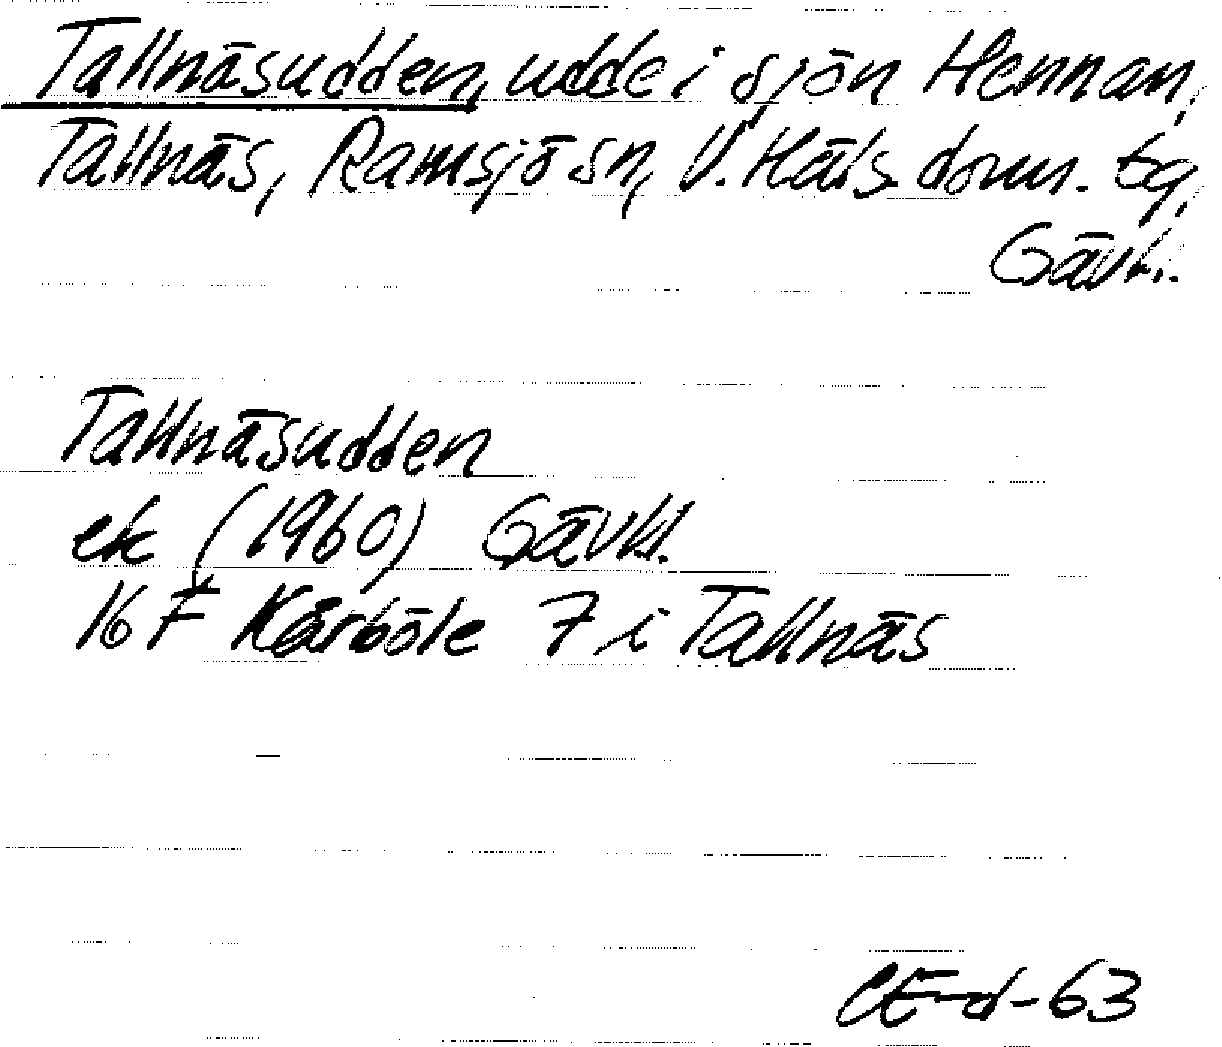 Tallnäsudden, udde i sjön Hennan,
Tallnäs, Ramsjö sn, V. Häls. doms. tg,
Gävl.
Tallnäsudden
ek (1960) Gävlel.
16 F Kårböle 7 i Tallnäs
CE-d-63